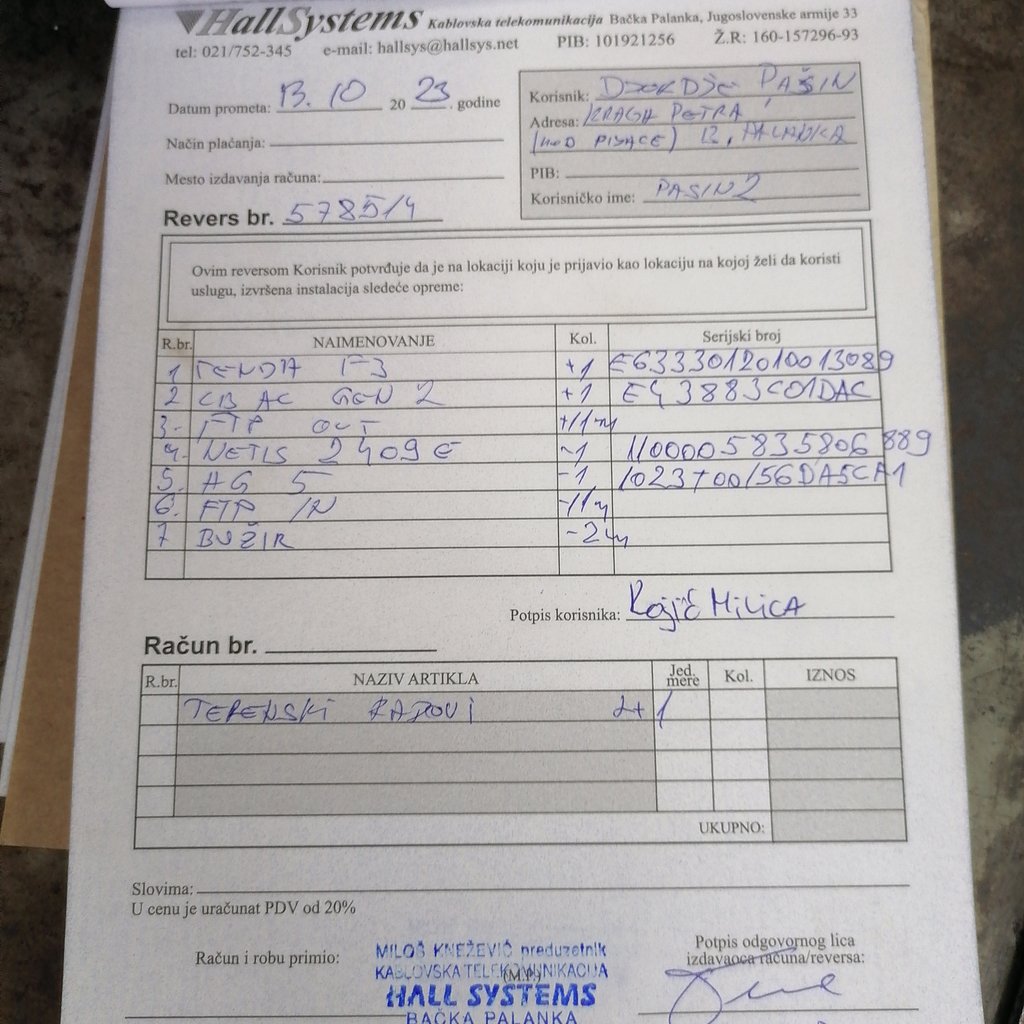 HallSystems Kablovska telekomunikacija Bačka Palanka, Jugoslovenske armije 33
tel: 021/752-345 e-mail: hallsys@hallsys.net PIB: 101921256 Ž.R: 160-157296-93
Datum prometa: 13. 10 20 23. godine
Način plaćanja:
Mesto izdavanja računa:
Revers br. 5785/4
Korisnik: DJORDJE PAŠIN
Adresa: KRALJA PETRA
(KOD PIJACE) B. PALANKA
PIB:
Korisničko ime: PASIN2
Ovim reversom Korisnik potvrđuje da je na lokaciji koju je prijavio kao lokaciju na kojoj želi da koristi
uslugu, izvršena instalacija sledeće opreme:
R.br. NAIMENOVANJE Kol. Serijski broj
1 TENDA F3 +1 E6333012010013089
2 CB AC GEN 2 +1 E43883C01DAC
3. FTP OUT +11m
4. NETIS 2409E -1 1100005835806889
5. AG 5 -1 1023700156DA5CA1
6. FTP IN -11m
7 BUŽIR -2m
Potpis korisnika: Rojić MILICA
Račun br.
R.br. NAZIV ARTIKLA Jed. mere Kol. IZNOS
TERENSKI RADOVI 1
UKUPNO:
Slovima:
U cenu je uračunat PDV od 20%
Račun i robu primio:
MILOŠ KNEŽEVIĆ preduzetnik
KABLOVSKA TELEKOMUNIKACIJA
(M.P.)
HALL SYSTEMS
BAČKA PALANKA
Potpis odgovornog lica
izdavaoca računa/reversa: